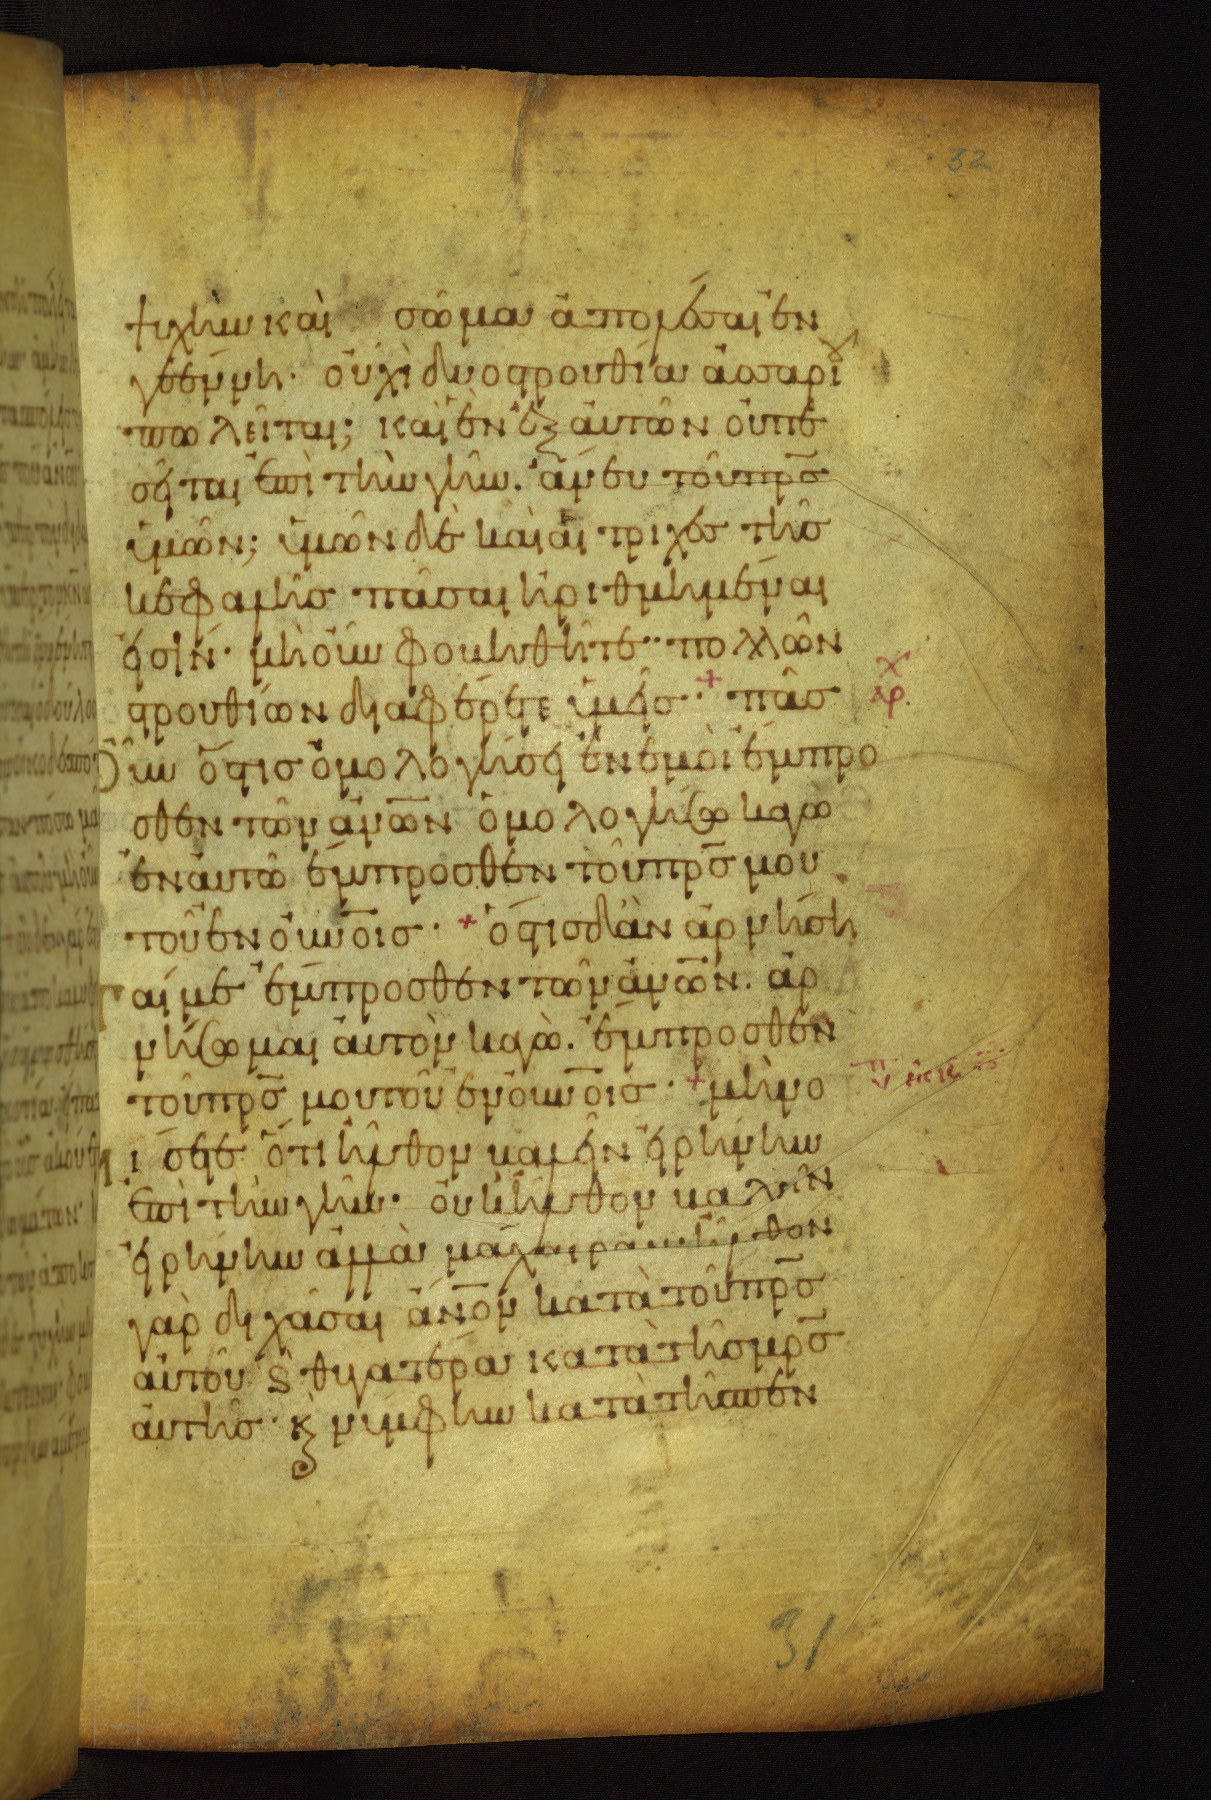 32
ψυχὴν καὶ σῶμα ἀπολέσαι ἐν
γεέννη· οὐχὶ δύο στρουθία ἀσσαρίου
πωλεῖται; καὶ ἓν ἐξ αὐτῶν οὐ πε
σεῖται ἐπὶ τὴν γῆν. ἄνευ τοῦ πρ̅σ
ὑμῶν; ὑμῶν δὲ καὶ αἱ τρίχες τῆς
κεφαλῆς πᾶσαι ἠριθμημέναι
εἰσίν· μὴ οὖν φοβηθῆτε· πολλῶν
στρουθίων διαφέρετε ὑμεῖς· + πᾶς
Οὖν ὅστις ὁμολογήσει ἐν ἐμοὶ ἔμπρο
σθεν τῶν ἀν̅ων ὁμολογήσω καγὼ
ἐν αὐτῷ ἔμπροσθεν τοῦ πρ̅σ μου
τοῦ ἐν οὐν̅οις· + ὅστις δ' ἂν ἀρνήση
ται με ἔμπροσθεν τῶν ἀν̅ων. ἀρ
νήσωμαι αὐτὸν καγὼ. ἔμπροσθεν
τοῦ πρ̅σ μου τοῦ ἐν οὐν̅οις· + μὴ νο
μίσητε ὅτι ἦλθον βαλεῖν εἰρήνην
ἐπὶ τὴν γῆν· οὐκ ἦλθον βαλεῖν
εἰρήνην ἀλλὰ μάχαιραν· ἦλθον
γὰρ διχάσαι ἄν̅ον κατὰ τοῦ πρ̅σ
αὐτοῦ ϛ θυγατέρα κατὰ τῆς μρ̅σ
αὐτῆς· κ̀ νύμφην κατὰ τῆς πεν
31